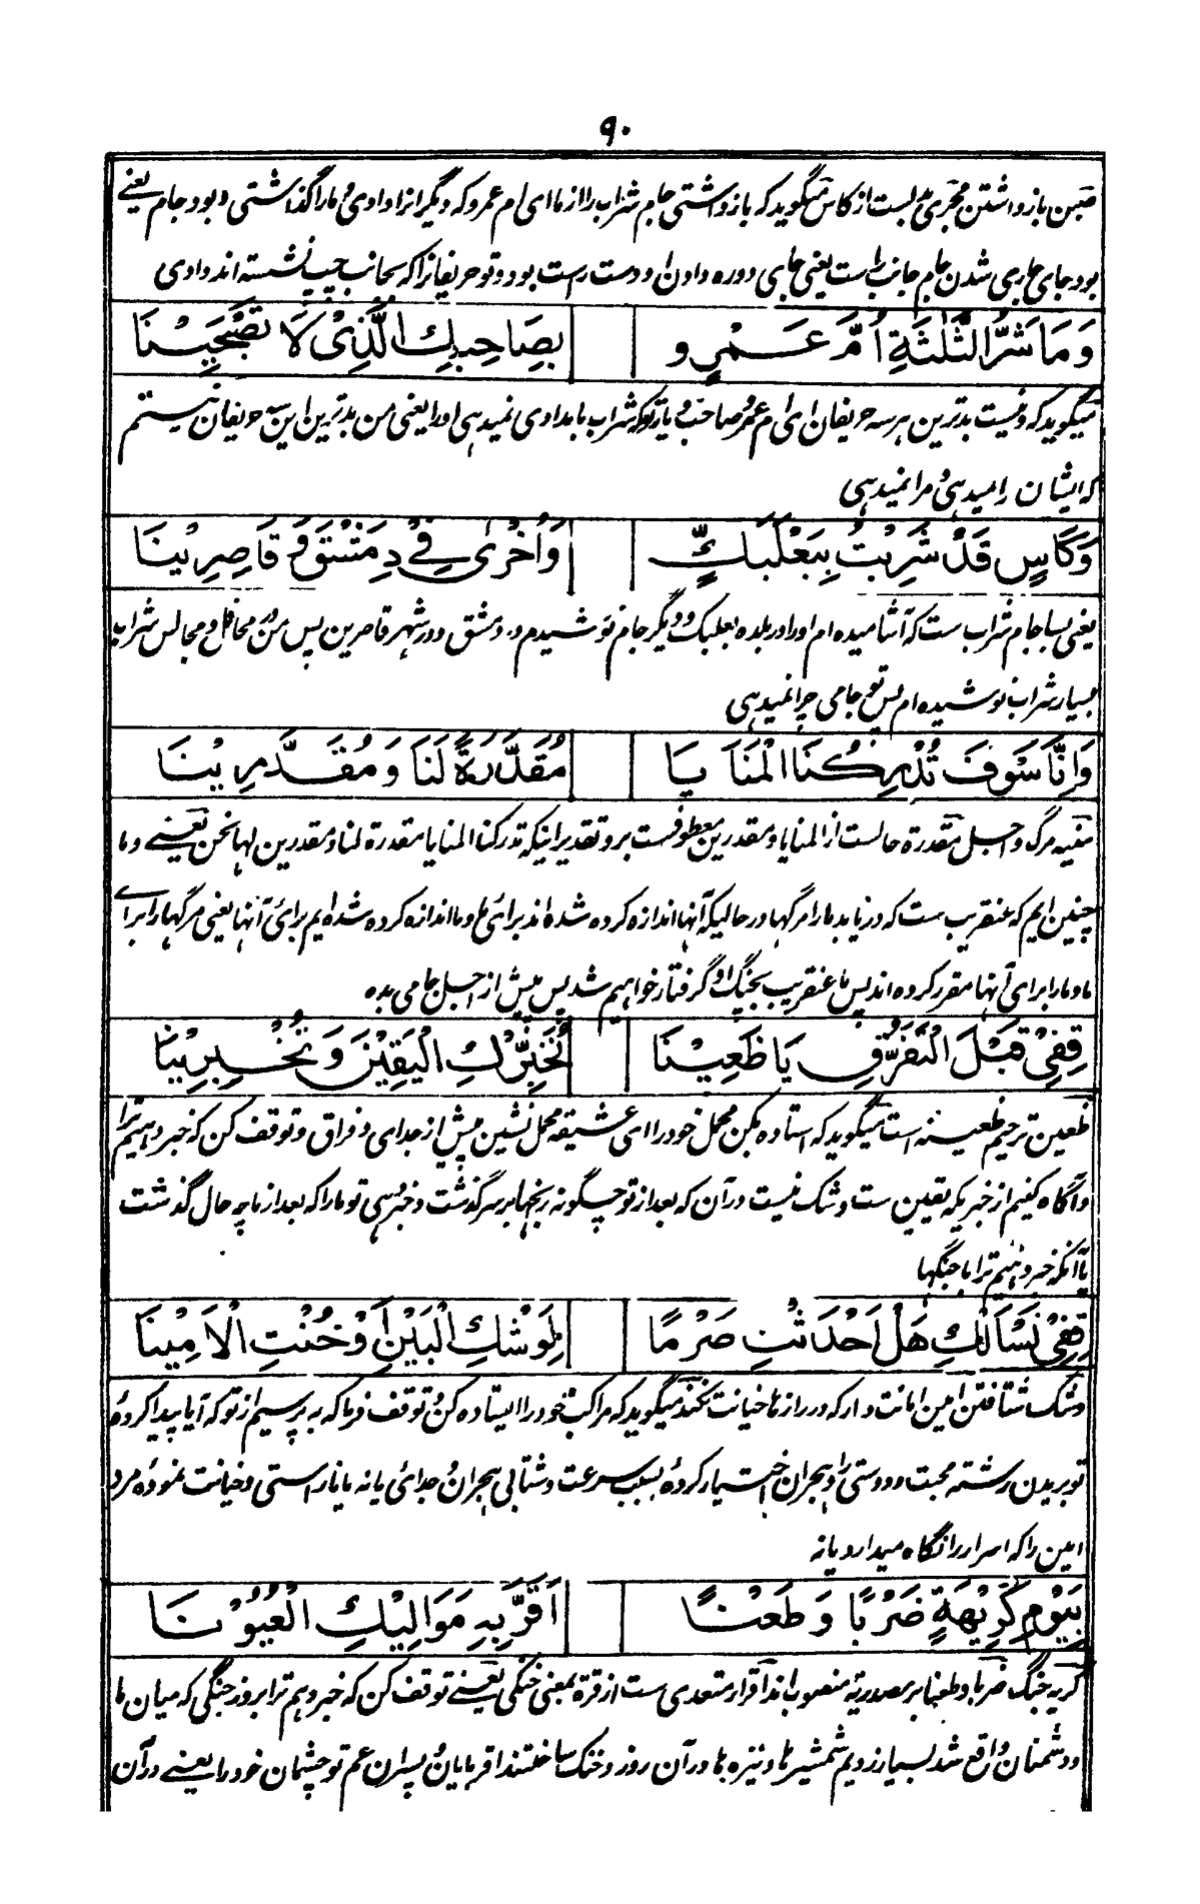 ۹۰
صَبن بازداشتن مجریٰ بدلست از کاس میگوید که بازداشتی جام شراب را از ما ای ام عمرو که دیگرانرا دادی و ما را گذاشتی و بود جام یعنے
بود جای جاری شدن جام جانب راست یعنی جای دوره دادن او دست راست بود و تو حریفانرا که بجانب چپ نشسته اند دادی
وَمَا شَرُّ الثَّلٰثَةِ اُمَّ عَمْرٍو بِصَاحِبِكِ الَّذِیْ لَا تَصْبَحِیْنَا
میگوید که و نیست بدترین هر سه حریفان ای ام عمرو صاحب و یار تو که شراب بامدادی نمیدهی او را یعنی من بدترین این سه حریفان نیستم
که ایشان را میدهی و مرا نمیدهی
وَكَاْسٍ قَدْ شَرِبْتُ بِبَعْلَبَكٍّ وَاُخْرٰی فِیْ دِمَشْقَ وَ قَاصِرِیْنَا
یعنی بسا جام شراب ست که آشامیده ام او را در بلده بعلبک و دیگر جام نوشیدم در دمشق و در شهر قاصرین پس من در محافل و مجالس شراب
بسیار شراب نوشیده ام پس تو جامی چرا نمیدهی
وَاِنَّا سَوْفَ تُدْرِكُنَا الْمَنَایَا مُقَدَّرَةً لَنَا وَ مُقَدَّرِیْنَا
منیه مرگ و اجل مقدرة حالست از المنایا و مقدرین معطوفست برو تقدیر اینکه تدرکنا المنایا مقدرة لنا و مقدرین لها نحن یعنے و ما
چنین ایم که عنقریب ست که دریابد ما را مرگها در حالیکه آنها اندازه کرده شده اند برای ما و ما اندازه کرده شده ایم برای آنها یعنی مرگها را برای
ما و ما را برای آنها مقرر کرده اند پس ما عنقریب بچنگ او گرفتار خواهیم شد پس پیش از اجل جامی بده
قِفِیْ قَبْلَ التَّفَرُّقِ یَا ظَعِیْنَا نُخَبِّرْكِ الْیَقِیْنَ وَ تُخْبِرِیْنَا
ظعین ترخیم ظعینه است میگوید که استاده بکن محمل خود را ای عشیقه محمل نشین پیش از جدای و فراق و توقف کن که خبر دهیم ترا
و آگاه کنیم از خبریکه یقین ست و شک نیست در آن که بعد از تو چگونه رنجها بر سر گذشت و خبر دهی تو ما را که بعد از ما چه حال گذشت
یا آنکه خبر دهیم ترا با جنگها
قِفِیْ نَسْاَلْكِ هَلْ اَحْدَثْتِ صَرْمًا لِوَشْكِ الْبَیْنِ اَوْ خُنْتِ الْاَمِیْنَا
وشک شتافتن امین امانت دار که در رازها خیانت نکند میگوید که مراکب خود را ایستاده کن و توقف فرما که به پرسیم از تو که آیا پیدا کردهٔ
تو بریدن رشته محبت و دوستی را و هجران اختیار کردهٔ بسبب سرعت و شتابی هجران و جدائی یا نه یا ناراستی و خیانت نمودهٔ مرد
امین را که اسرار را نگاه میدارد یا نه
بِیَوْمِ كَرِیْهَةٍ ضَرْبًا وَ طَعْنًا اَقَرَّ بِهٖ مَوَالِیْكِ الْعُیُوْنَا
کریهه جنگ ضربا و طعنا بر مصدریة منصوب اند اقرار متعدی ست از قرة بمعنی خنکی یعنے توقف کن که خبر دهم ترا بروز جنگی که میان ما
و دشمنان واقع شد بسیار زدیم شمشیرها و نیزه ها در آن روز و خنک ساختند اقربایان و پسران عم تو چشمان خود را یعنے در آن